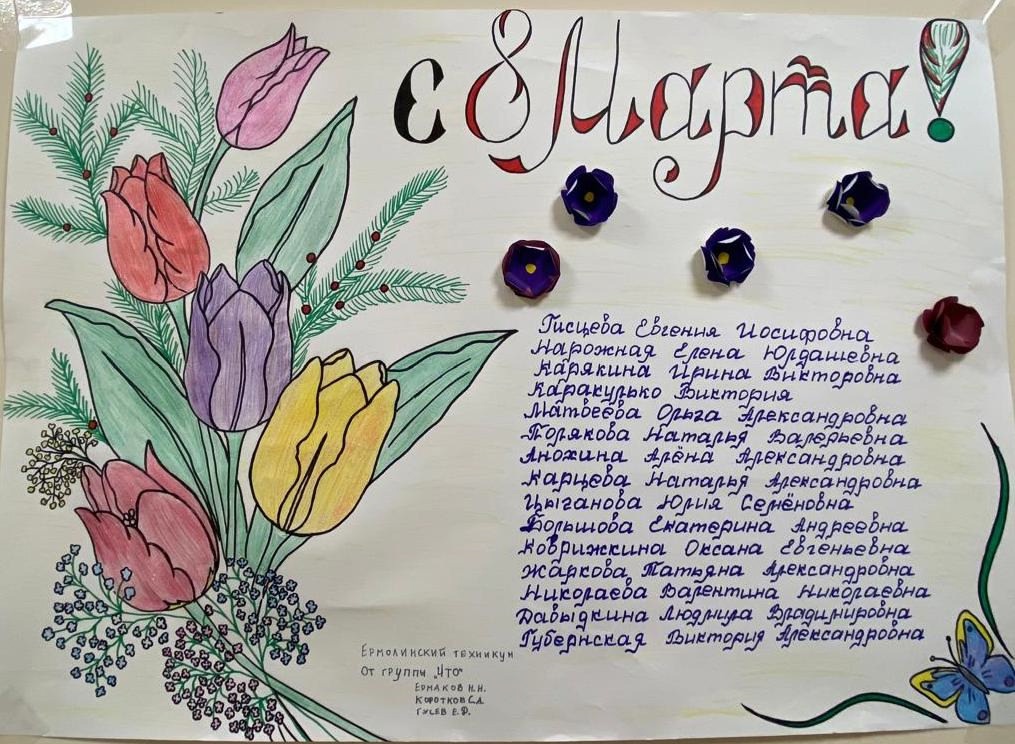 с 8 Марта!
Гисцева Евгения Иосифовна
Нарожная Елена Юлдашевна
Карякина Ирина Викторовна
Каракулько Виктория
Матвеева Ольга Александровна
Полякова Наталья Валерьевна
Анохина Алёна Александровна
Карцева Наталья Александровна
Цыганова Юлия Семёновна
Большова Екатерина Андреевна
Коврижкина Оксана Евгеньевна
Жаркова Татьяна Александровна
Николаева Валентина Николаевна
Давыдкина Людмила Владимировна
Губернская Виктория Александровна
Ермолинский техникум
От группы „ЧТО"
Ермаков Н.Н.
Коротков С.А.
Гусев Е.Ф.